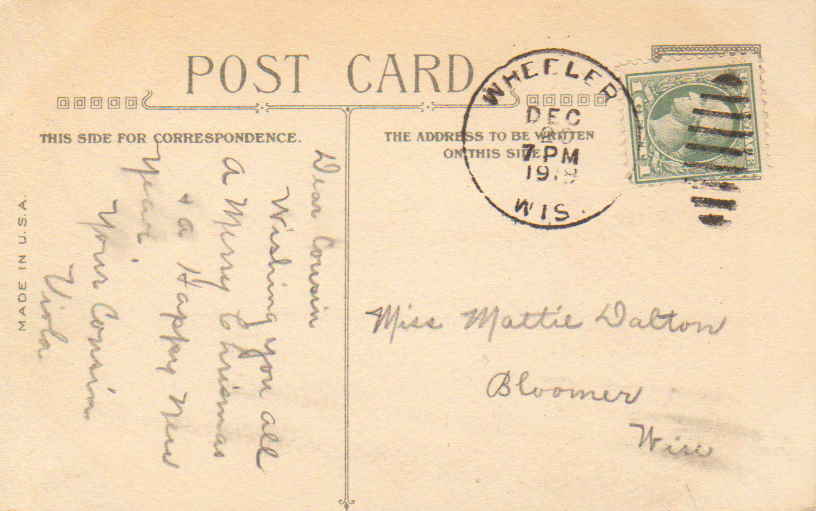 POST CARD
THIS SIDE FOR CORRESPONDENCE.
THE ADDRESS TO BE WRITTEN
ON THIS SIDE
WHEELER
DEC
7 PM
WIS.
MADE IN U.S.A.
Dear Cousin
Wishing you all
a Merry Chrismas
& a Happy New
Year.
Your Cousin
Viola
Miss Mattie Dalton
Bloomer
Wisc